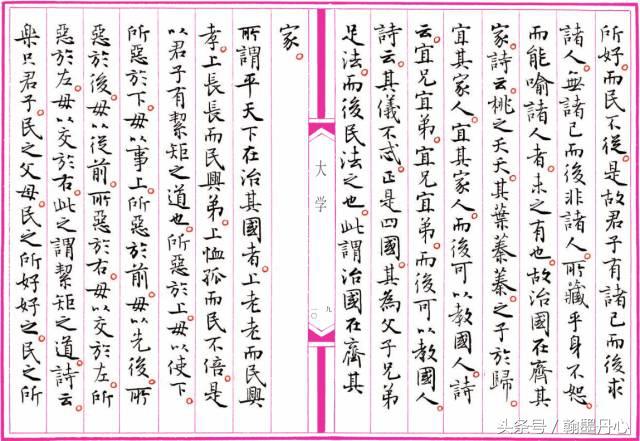 所好而民不從。是故君子有諸己而後求
諸人。無諸己而後非諸人。所藏乎身不恕。
而能喻諸人者。未之有也。故治國在齊其
家。詩云。桃之夭夭。其葉蓁蓁。之子於歸。
宜其家人。宜其家人。而後可以教國人。詩
云。宜兄宜弟。宜兄宜弟。而後可以教國人。
詩云。其儀不忒。正是四國。其為父子兄弟
足法。而後民法之也。此謂治國在齊其
大学
九
一〇
家。
所謂平天下在治其國者。上老老而民興
孝。上長長而民興弟。上恤孤而民不倍。是
以君子有絜矩之道也。所惡於上。毋以使下。
所惡於下。毋以事上。所惡於前。毋以先後。所
惡於後。毋以從前。所惡於右。毋以交於左。所
惡於左。毋以交於右。此之謂絜矩之道。詩云。
樂只君子。民之父母。民之所好好之。民之所
头条号 / 翰墨丹心